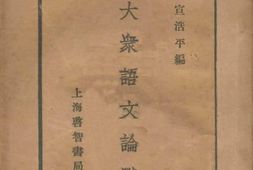 宣浩平編
大衆語文論
上海啓智書局